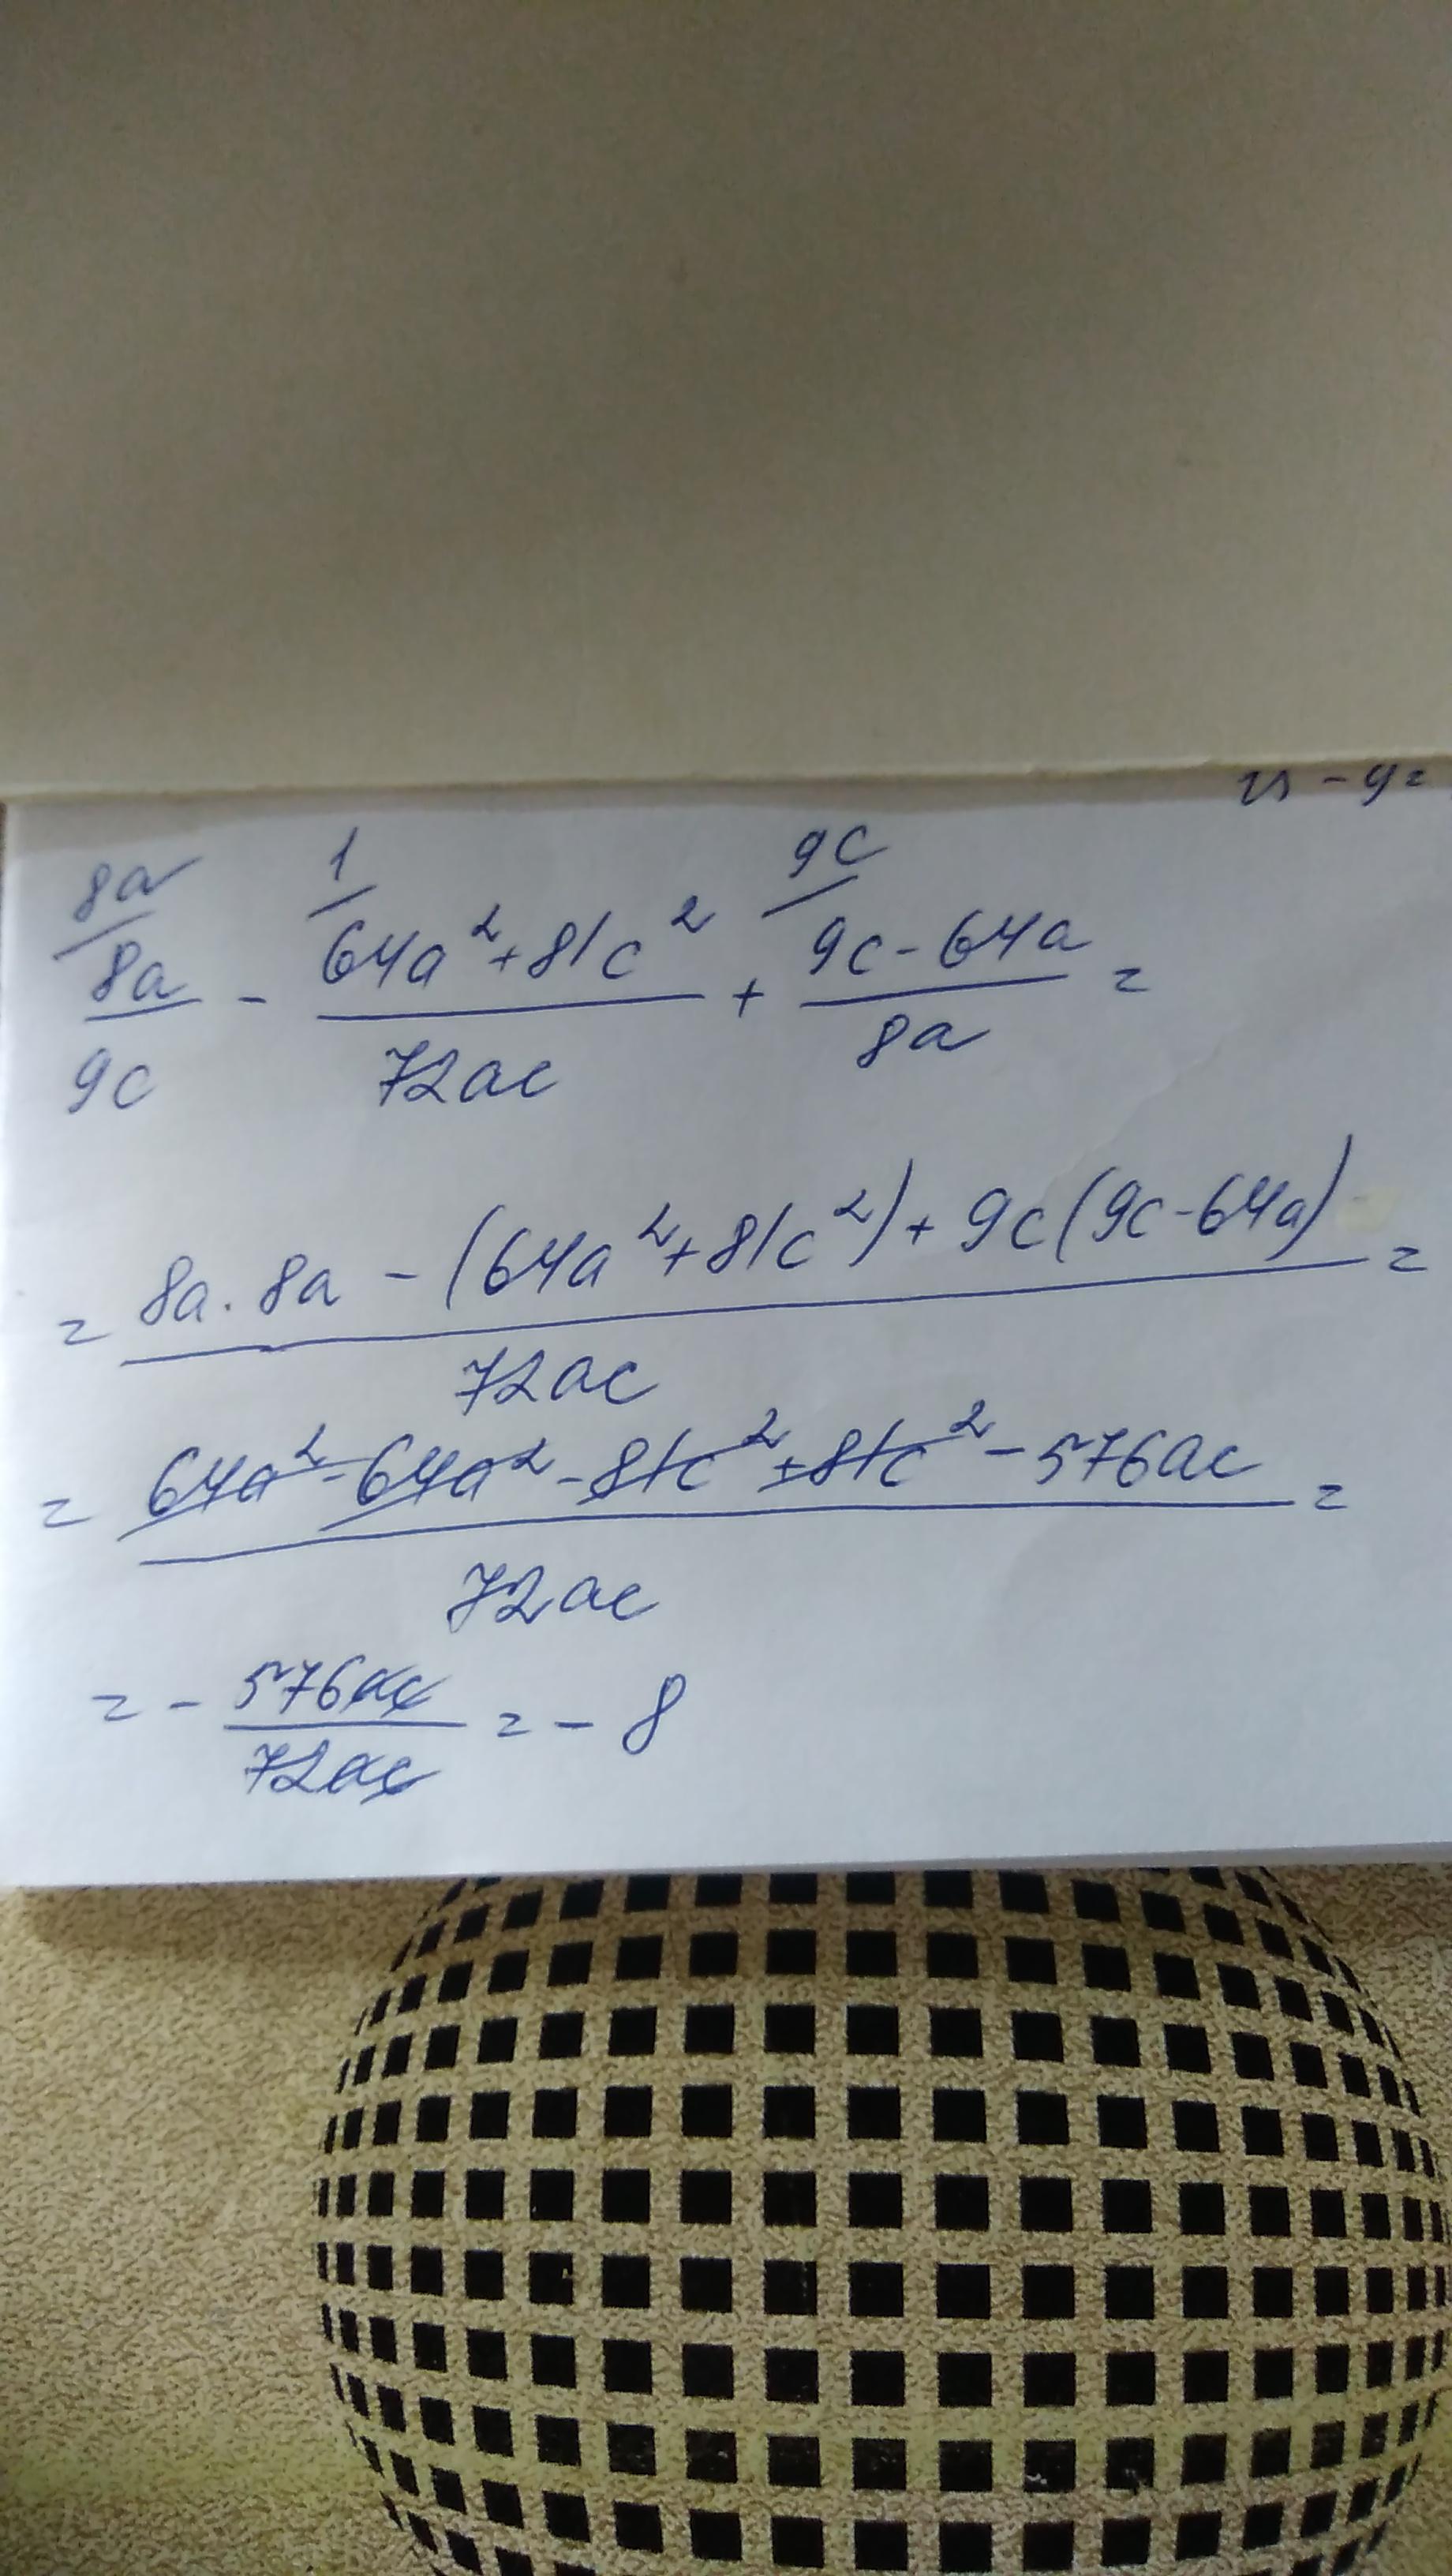 8a/ 1/ 9c/
8a/9c - (64a²+81c²)/72ac + (9c-64a)/8a =
= (8a·8a - (64a²+81c²) + 9c(9c-64a))/72ac =
= (64a²-64a²-81c²+81c²-576ac)/72ac =
= - 576ac/72ac = - 8